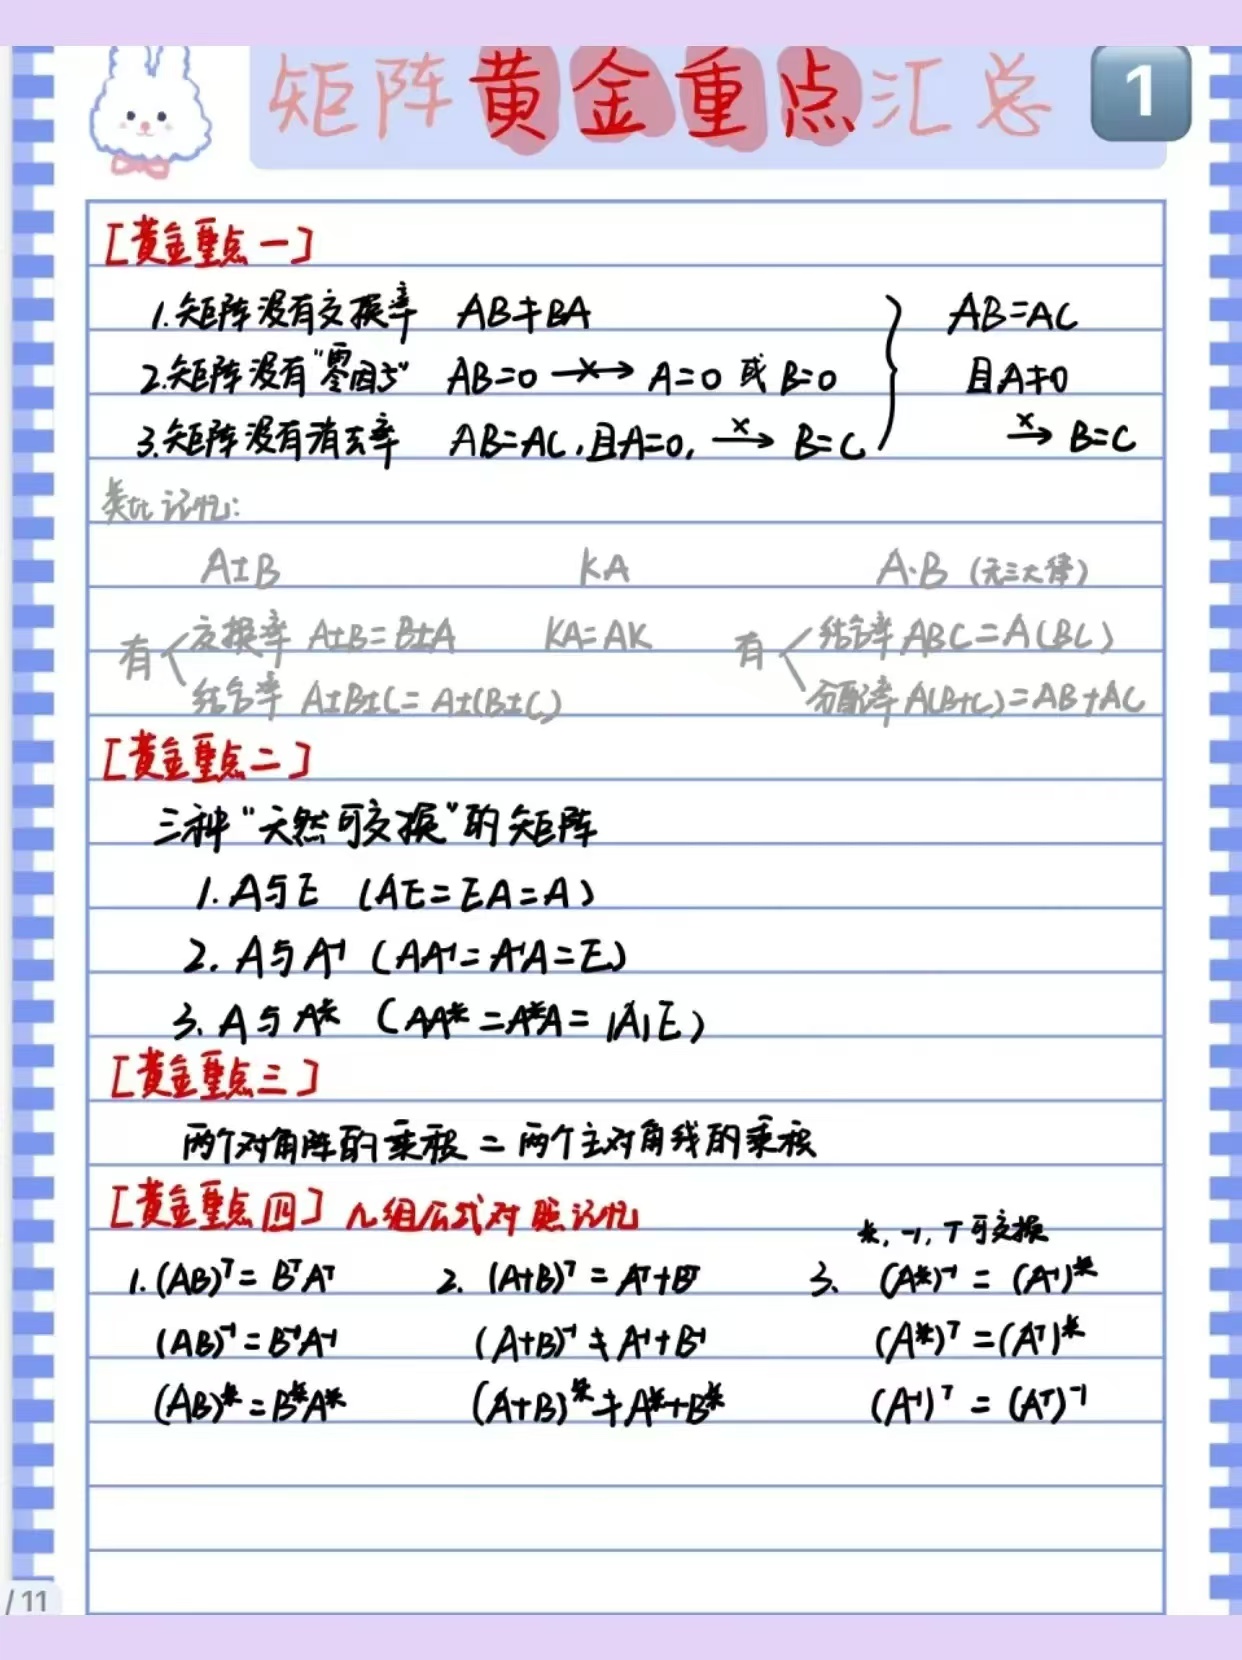 矩阵黄金重点汇总 1
[黄金重点一]
1.矩阵没有交换率 AB≠BA
2.矩阵没有"零因子" AB=0 -×→ A=0 或 B=0
3.矩阵没有消去率 AB=AC,且A=0, -×→ B=C
} AB=AC
且A≠0
-×→ B=C
类比记忆:
A±B KA A·B (无三大律)
有 交换率 A±B=B±A KA=AK 有 结合率 ABC=A(BC)
结合率 A±B±C=A±(B±C) 分配率 A(B+C)=AB+AC
[黄金重点二]
三种"天然可交换"的矩阵
1. A与E (AE=EA=A)
2. A与A⁻¹ (AA⁻¹=A⁻¹A=E)
3. A与A* (AA*=A*A=|A|E)
[黄金重点三]
两个对角阵的乘积=两个主对角线的乘积
[黄金重点四] 几组公式对照记忆
*, -1, T可交换
1. (AB)ᵀ=BᵀAᵀ 2. (A+B)ᵀ=Aᵀ+Bᵀ 3. (A*)⁻¹=(A⁻¹)*
(AB)⁻¹=B⁻¹A⁻¹ (A+B)⁻¹≠A⁻¹+B⁻¹ (A*)ᵀ=(Aᵀ)*
(AB)*=B*A* (A+B)*≠A*+B* (A⁻¹)ᵀ=(Aᵀ)⁻¹
/11